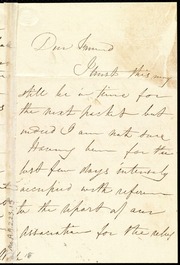 Dear Friend
I trust this may
still be in time for
the next packet but
indeed I am not sure
Having been for the
last few days intensely
occupied with reference
to the report of our
association for the relief